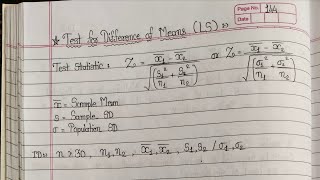 Page No. 144
Date
* Test for Difference of Means (LS) »
Test Statistic : Z₀ = (x̄₁ - x̄₂) / √(s₁²/n₁ + s₂²/n₂) or Z₀ = (x̄₁ - x̄₂) / √(σ₁²/n₁ + σ₂²/n₂)
x̄ = Sample Mean
s = Sample SD
σ = Population SD
n ≥ 30, n₁, n₂, x̄₁, x̄₂, s₁, s₂ / σ₁, σ₂